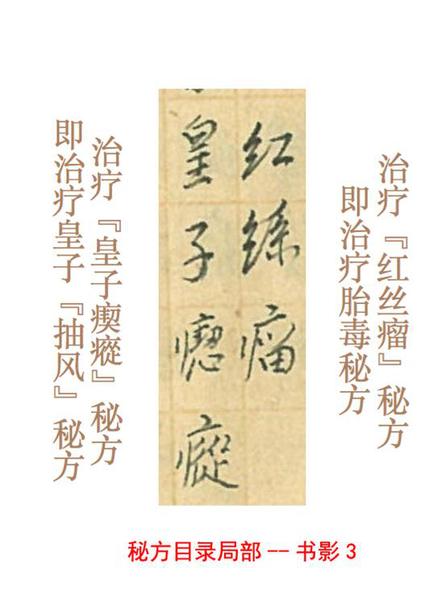 治疗『红丝瘤』秘方
即治疗胎毒秘方
红絲瘤
皇子瘛瘲
治疗『皇子瘈瘲』秘方
即治疗皇子『抽风』秘方
秘方目录局部--书影3